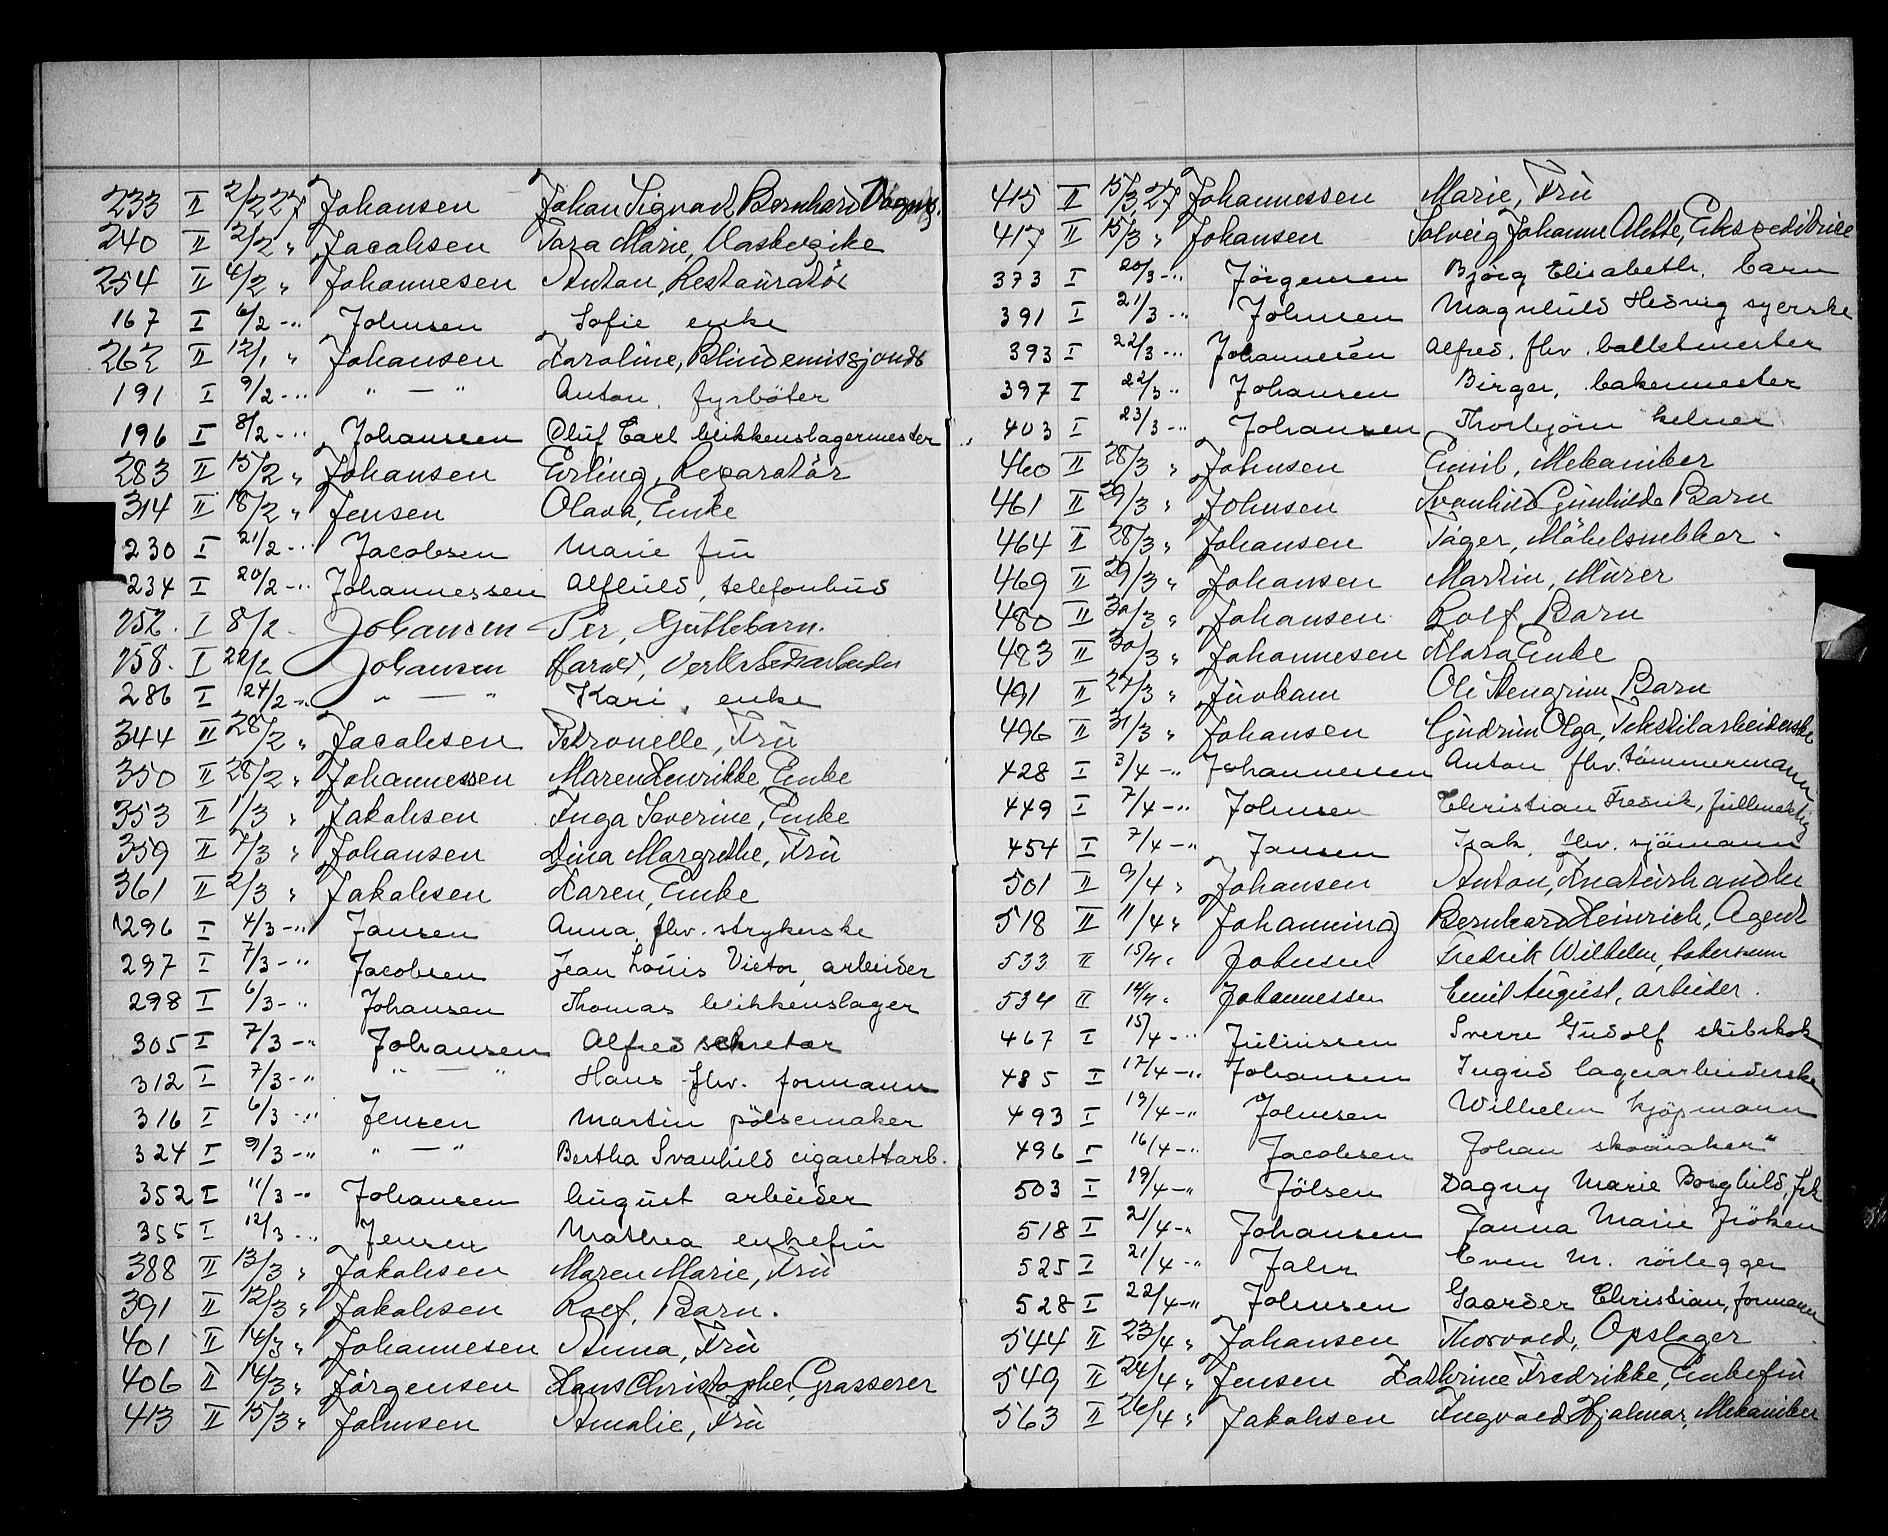 233 II 2/2 27 Johansen Johan Sigvard Bernhard
240 II 2/2 " Jacobsen Tara Marie, Vaskerzike
254 II 4/2 " Johannesen Anton, Restauratör
167 I 6/2 -" Johnsen Sofie enke
262 II 12/1 " Johansen Karoline, Blindemissjonds
191 I 9/2 -" " — " Anton, fyrböter
196 I 8/2 -" Johanssen Oluf Carl blikkenslagermester
283 II 15/2 " Johansen Erling, Reparatör
314 II 18/2 " Jensen Olava, Enke
230 I 21/2 -" Jacobsen Marie fru
234 I 20/2 -" Johannessen Alfhild, telefonbud
252. I 8/2 - Johansen Per, Guttebarn.
258. I 22/2 Johansen Harald, Verkstedsarbeider
286 I 24/2 -" " — " Kari, enke
344 II 28/2 " Jacobsen Petronelle, Fru
350 II 28/2 " Johannessen Maren Henrikke, Enke
353 II 1/3 " Jakobsen Inga Severine, Enke
359 II 7/3 " Johansen Dina Margrethe, Fru
361 II 2/3 " Jakobsen Karen, Enke
296 I 4/3 -" Jansen Anna, fhv. strykerske
297 I 7/3 -" Jacobsen Jean Louis Victor, arbeider
298 I 6/3 -" Johansen Thomas blikkenslager
305 I 7/3 -" Johansen Alfred sekretær
312 I 7/3 -" " — " Hans fhv. formann
316 I 6/3 -" Jensen Martin pölsemaker
324 I 9/3 -" " — " Bertha Svanhild cigarettarb.
352 I 11/3 -" Johansen August arbeider
355 I 12/3 -" Jensen Mathea enkefru
388 II 13/3 " Jakobsen Maren Marie, Fru
391 II 12/3 " Jakobsen Rolf, Barn.
401 II 14/3 " Johannesen Anna, Fru
406 II 14/3 " Jörgensen Hans Christopher, Grosserer
413 II 15/3 " Johnsen Amalie, Fru
415 II 15/3 27 Johannessen Marie, Fru
417 II 15/3 " Johansen Solveig Johanne Alette, Ekspeditrice
373 I 20/3 -" Jörgensen Bjørg Elisabeth, barn
391 I 21/3 -" Johnsen Magnhild Hedvig syerske
393 I 22/3 -" Johannesen Alfred. fhv. balletmester
397 I 22/3 -" Johansen Birger, bakermester
403 I 23/3 -" Johansen Thorbjörn kelner
460 II 28/3 " Johnsen Emil, Mekaniker
461 II 29/3 " Johnsen Svanhild Gunhilde Barn
464 II 28/3 " Johansen Tager, Möbelsnekker
469 II 29/3 " Johansen Martin, Murer
480 II 30/3 " Johansen Rolf Barn
483 II 30/3 " Johannesen Mara Enke
491 II 27/3 " Juvkam Ole Stengrim Barn
496 II 31/3 " Johansen Gudrun Olga, Tekstilarbeiderske
428 I 3/4 -" Johannessen Anton fhv. tömmermann
449 I 7/4 -" Johnsen Christian Fredrik, fullmektig
454 I 7/4 -" Jansen Isak, fhv. sjömann
501 II 9/4 " Johansen Anton, Kreaturhandler
518 II 11/4 " Johanning Bernhard Heinrich, Agent
533 II 15/4 " Johnsen Fredrik Wilhelm, bakersvenn
534 II 14/4 " Johannessen Emil August, arbeider.
467 I 15/4 -" Juliussen Sverre Gudolf skibskok
485 I 17/4 -" Johansen Ingrid lagerarbeiderske
493 I 19/4 -" Johnsen Wilhelm kjöpmann
496 I 16/4 -" Jacobsen Johan skomaker
503 I 19/4 -" Jölsen Dagny Marie Borghild, frk
518 I 21/4 -" Johansen Janna Marie fröken
525 I 21/4 -" Jahr Even M. rörlegger
528 I 22/4 -" Johnsen Gaarder Christian, formann
544 II 23/4 " Johansen Thorvald, Opslager
549 II 24/4 " Jensen Kathrine Fredrikke, Enkefru
563 II 26/4 " Jakobsen Ingvald Hjalmar, Mekaniker